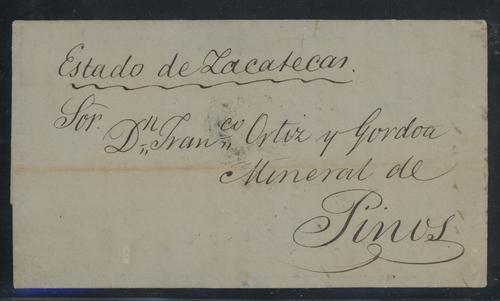 Estado de Zacatecas.
Sor. Dn Franco Ortiz y Gordoa
Mineral de
Pinos